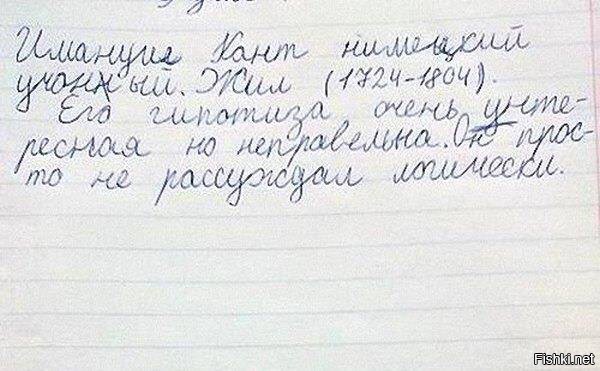 Имануил Кант нимецкий
учонный. Жил (1724-1804).
Его гипотиза очень инте-
ресная но неправельна. Он прос-
то не рассуждал логически.
Fishki.net